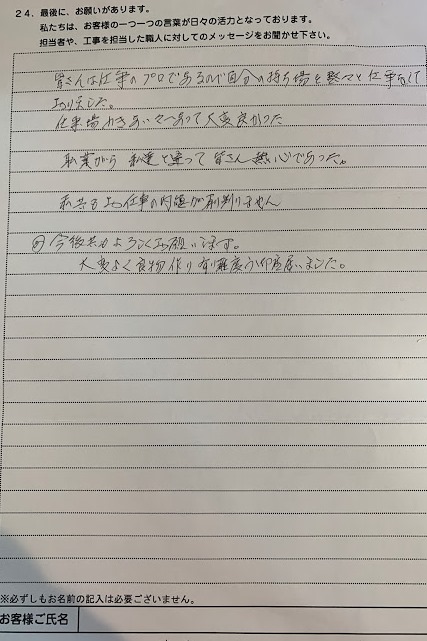 24. 最後に、お願いがあります。
私たちは、お客様の一つ一つの言葉が日々の活力となっております。
担当者や、工事を担当した職人に対してのメッセージをお聞かせ下さい。
皆さんは仕事のプロであるので自分の持ち場を黙々と仕事なして
おりました。
仕事場 大変良かった
私達と違って皆さん熱心であった。
私共も お仕事の内 判りません
今後共よろしくお願います。
大変よく 物作り有難度う御座居ました。
※必ずしもお名前の記入は必要ございません。
お客様ご氏名